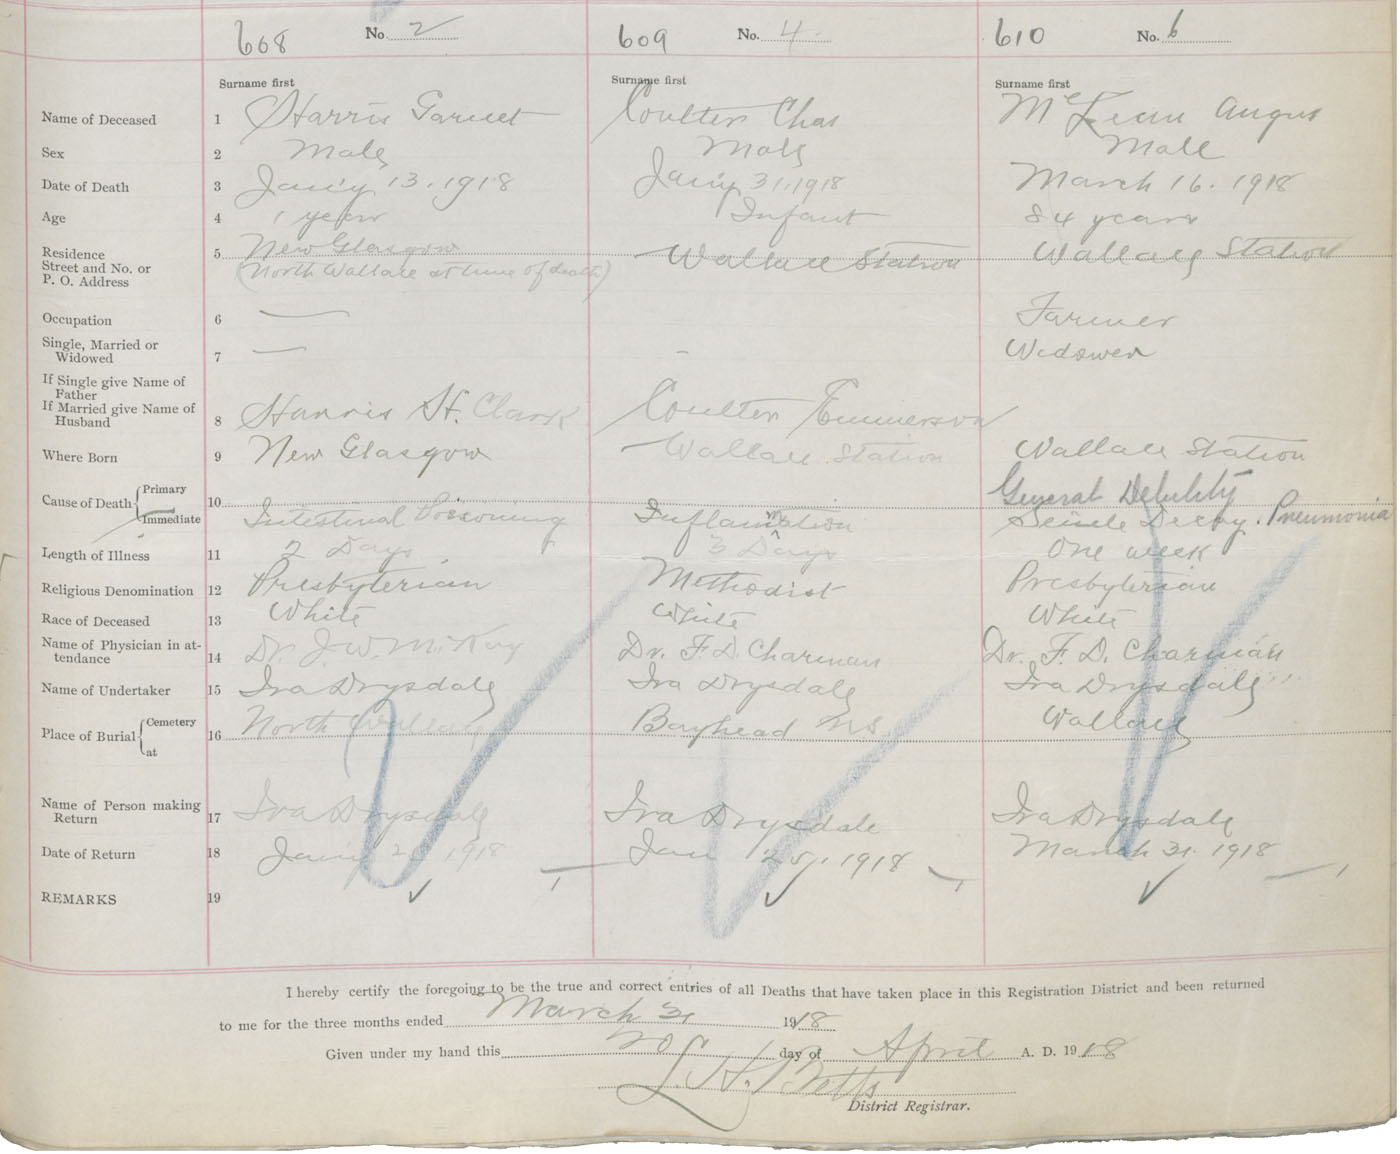 668 No. 2 609 No. 4 610 No. 6
Surname first Surname first Surname first
Name of Deceased 1 Harris Garnet Coulter Chas McLean Angus
Sex 2 Male Male Male
Date of Death 3 Jan'y 13. 1918 Jan'y 31, 1918 March 16. 1918
Age 4 1 year Infant 84 years
Residence 5 New Glasgow Wallace Station Wallace Station
Street and No. or (North Wallace at time of death)
P. O. Address
Occupation 6 — Farmer
Single, Married or
Widowed 7 — - Widower
If Single give Name of
Father
If Married give Name of
Husband 8 Harris H. Clark Coulter Emmerson
Where Born 9 New Glasgow Wallace Station Wallace Station
Cause of Death Primary 10 General Debility
Immediate Intestinal Poisoning Inflammation Senile Decay. Pneumonia
Length of Illness 11 2 Days 3 Days One week
Religious Denomination 12 Presbyterian Methodist Presbyterian
Race of Deceased 13 White White White
Name of Physician in at-
tendance 14 Dr. J. W. McKay Dr. F. D. Charman Dr. F. D. Charman
Name of Undertaker 15 Ira Drysdale Ira Drysdale Ira Drysdale
Place of Burial Cemetery 16 North Wallace Bayhead N S Wallace
at
Name of Person making
Return 17 Ira Drysdale Ira Drysdale Ira Drysdale
Date of Return 18 Jan'y 1918 Jan 1918 March 31. 1918
REMARKS 19 ✓ ✓ ✓
I hereby certify the foregoing to be the true and correct entries of all Deaths that have taken place in this Registration District and been returned
to me for the three months ended March 31 1918
Given under my hand this 20 day of April A. D. 1918
L. H. Betts
District Registrar.